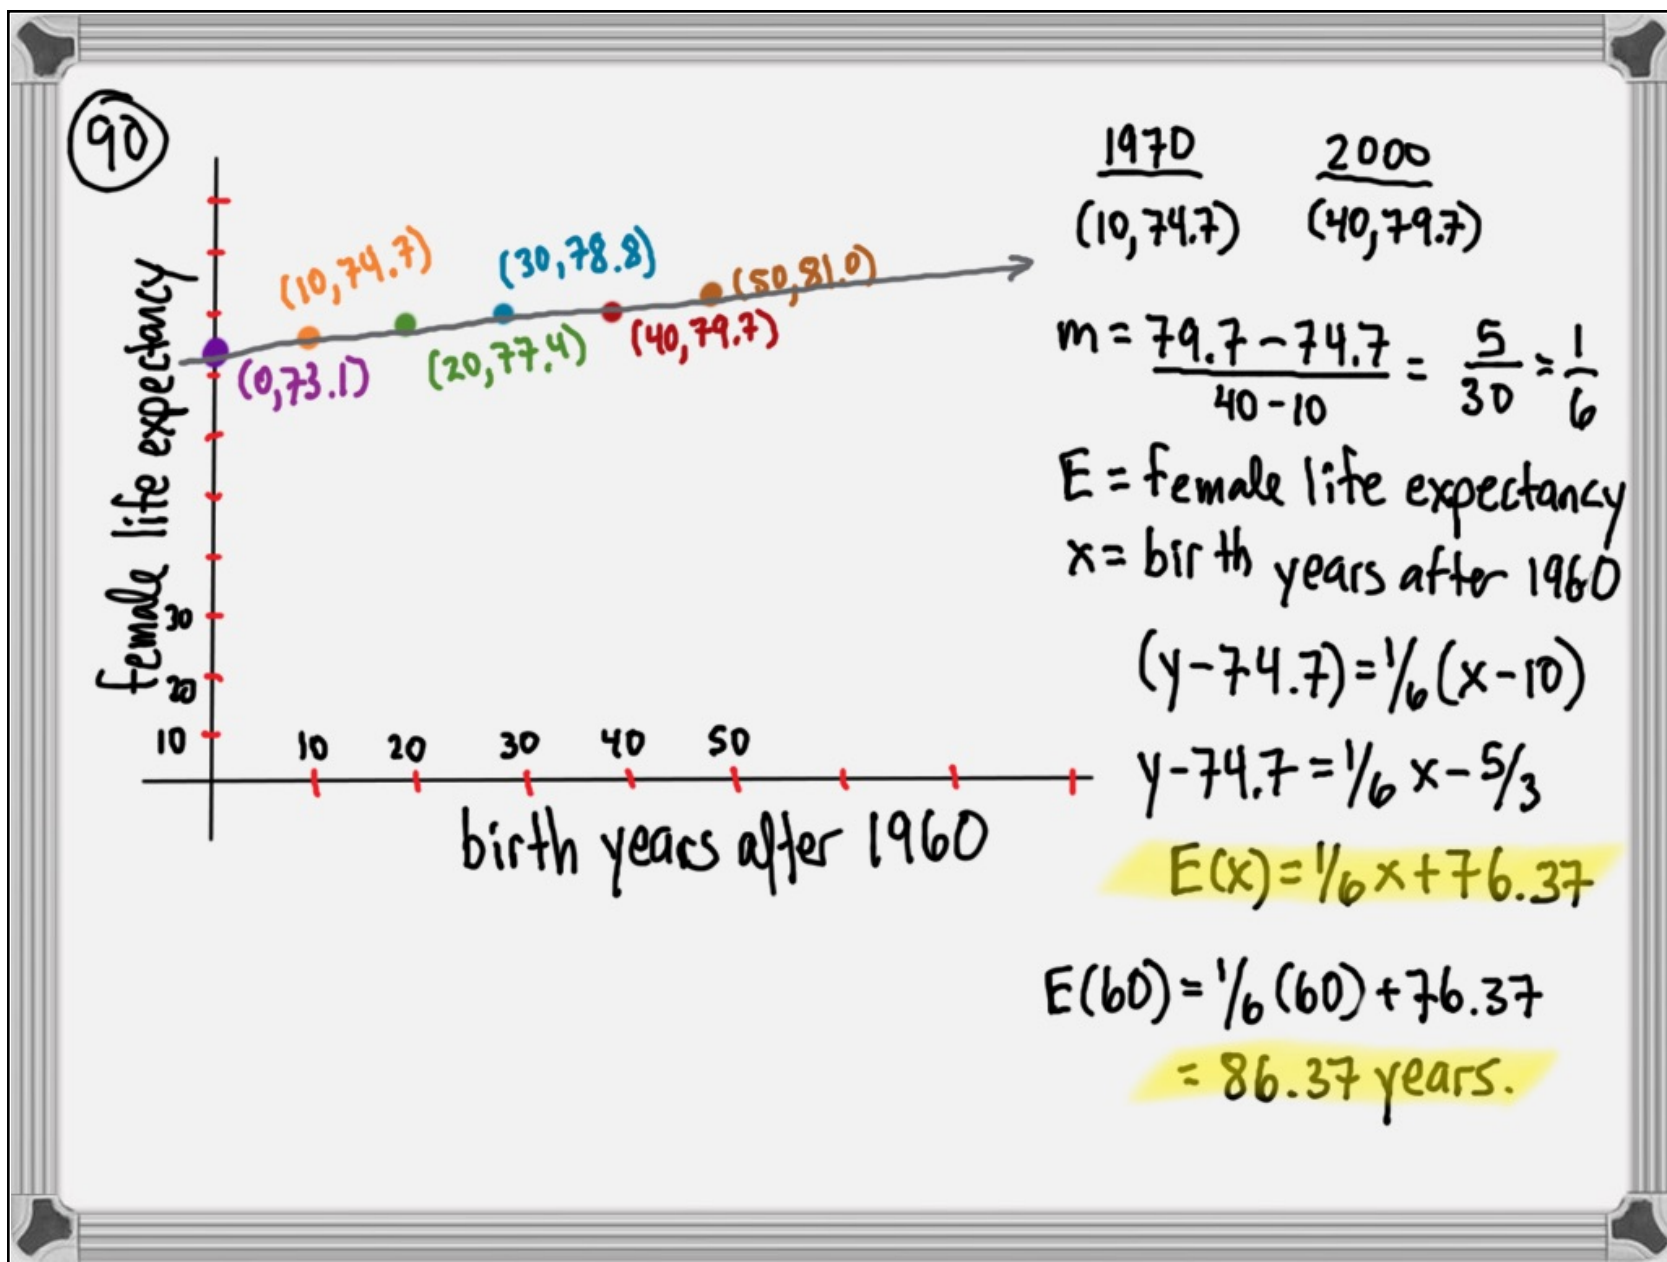 90
Female life expectancy
(10,74.7)
(30,78.8)
(50,81.0)
(0,73.1)
(20,77.4)
(40,79.7)
30
20
10
10 20 30 40 50
birth years after 1960
1970 2000
(10,74.7) (40,79.7)
m = 79.7 - 74.7 / 40 - 10 = 5/30 = 1/6
E = female life expectancy
x = birth years after 1960
(y - 74.7) = 1/6 (x - 10)
y - 74.7 = 1/6 x - 5/3
E(x) = 1/6 x + 76.37
E(60) = 1/6 (60) + 76.37
= 86.37 years.